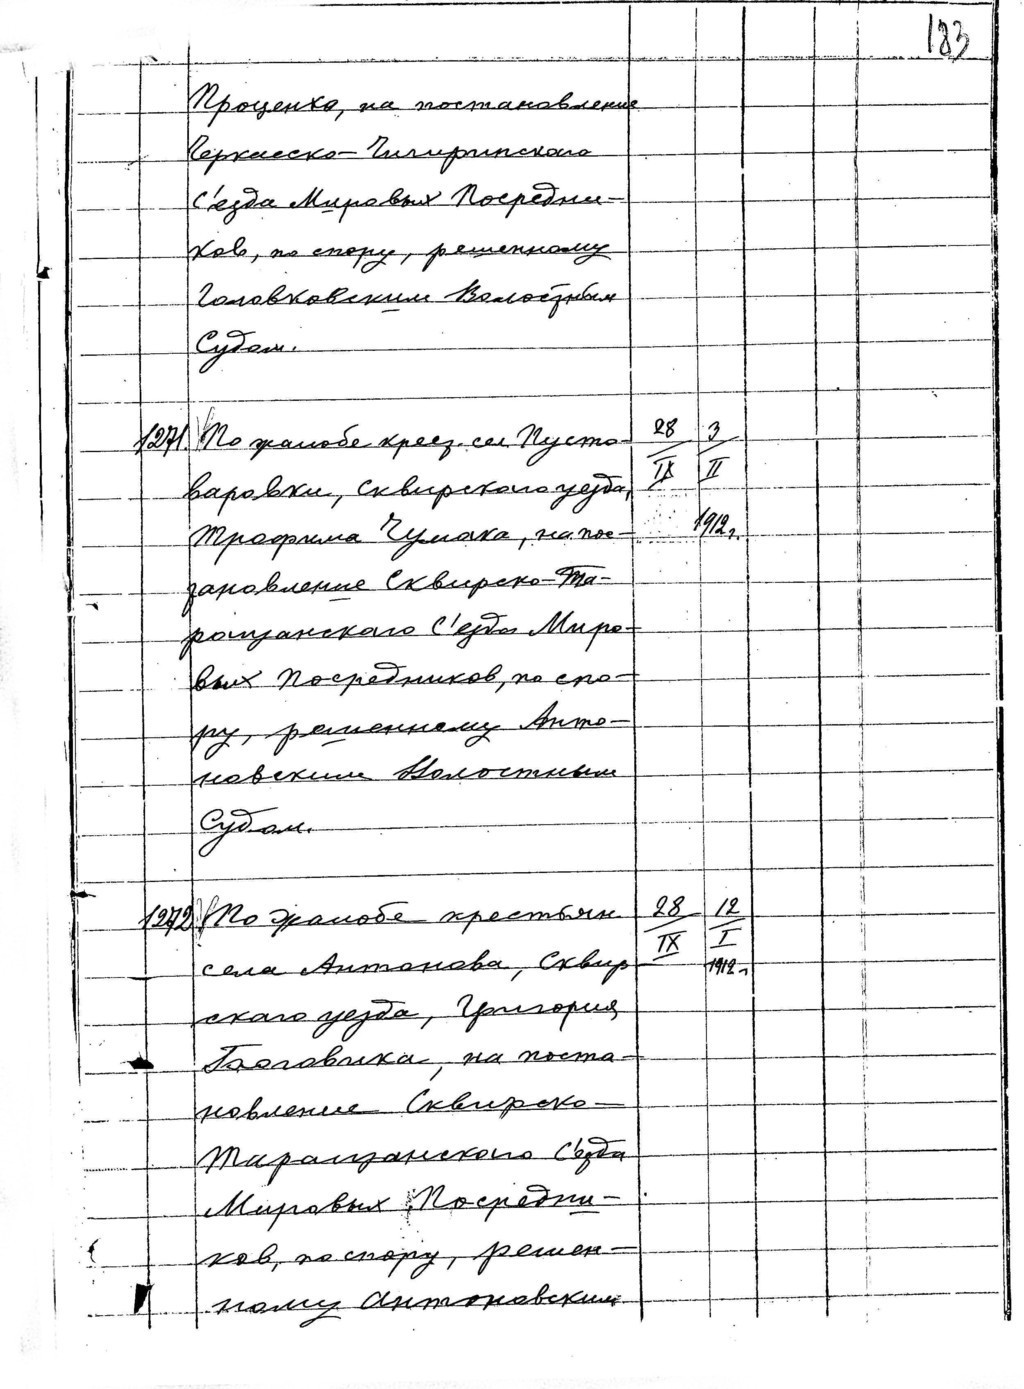 183
Проценко, на постановление
Черкасско-Чигиринского
С'езда Мировых Посредни-
ков, по спору, решенному
Головковским Волостным
Судом.
1271. По жалобе крест. сел. Пусто- 28 3
варовки, Сквирского уезда, IX II
Трофима Чумака, на пос- 1912г.
тановление Сквирско-Та-
ращанского С'езда Миро-
вых Посредников, по спо-
ру, решенному Анто-
новским Волостным
Судом.
1272 По жалобе крестьян 28 12
села Антонова, Сквир IX I
ского уезда, Григория 1912г.
на поста-
новление Сквирско-
Таращанского С'езда
Мировых Посредни-
ков, по спору, решен-
ному Антоновским